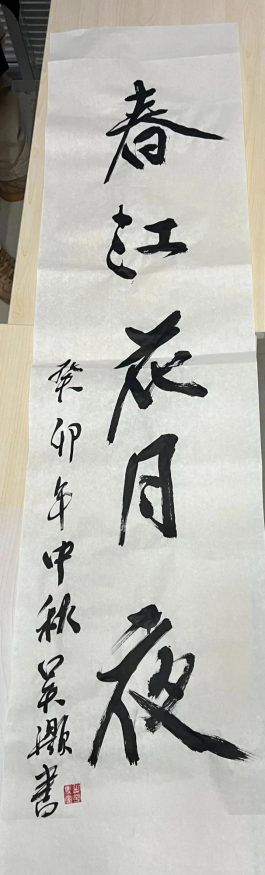 春江花月夜
癸卯年中秋吴灏書